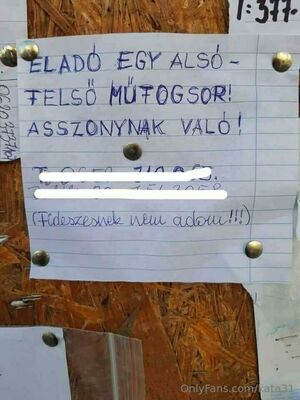 1:377-
ELADÓ EGY ALSÓ -
FELSŐ MŰFOGSOR!
ASSZONYNAK VALÓ!
(Fideszesnek nem adom!!!)
OnlyFans.com/kata31